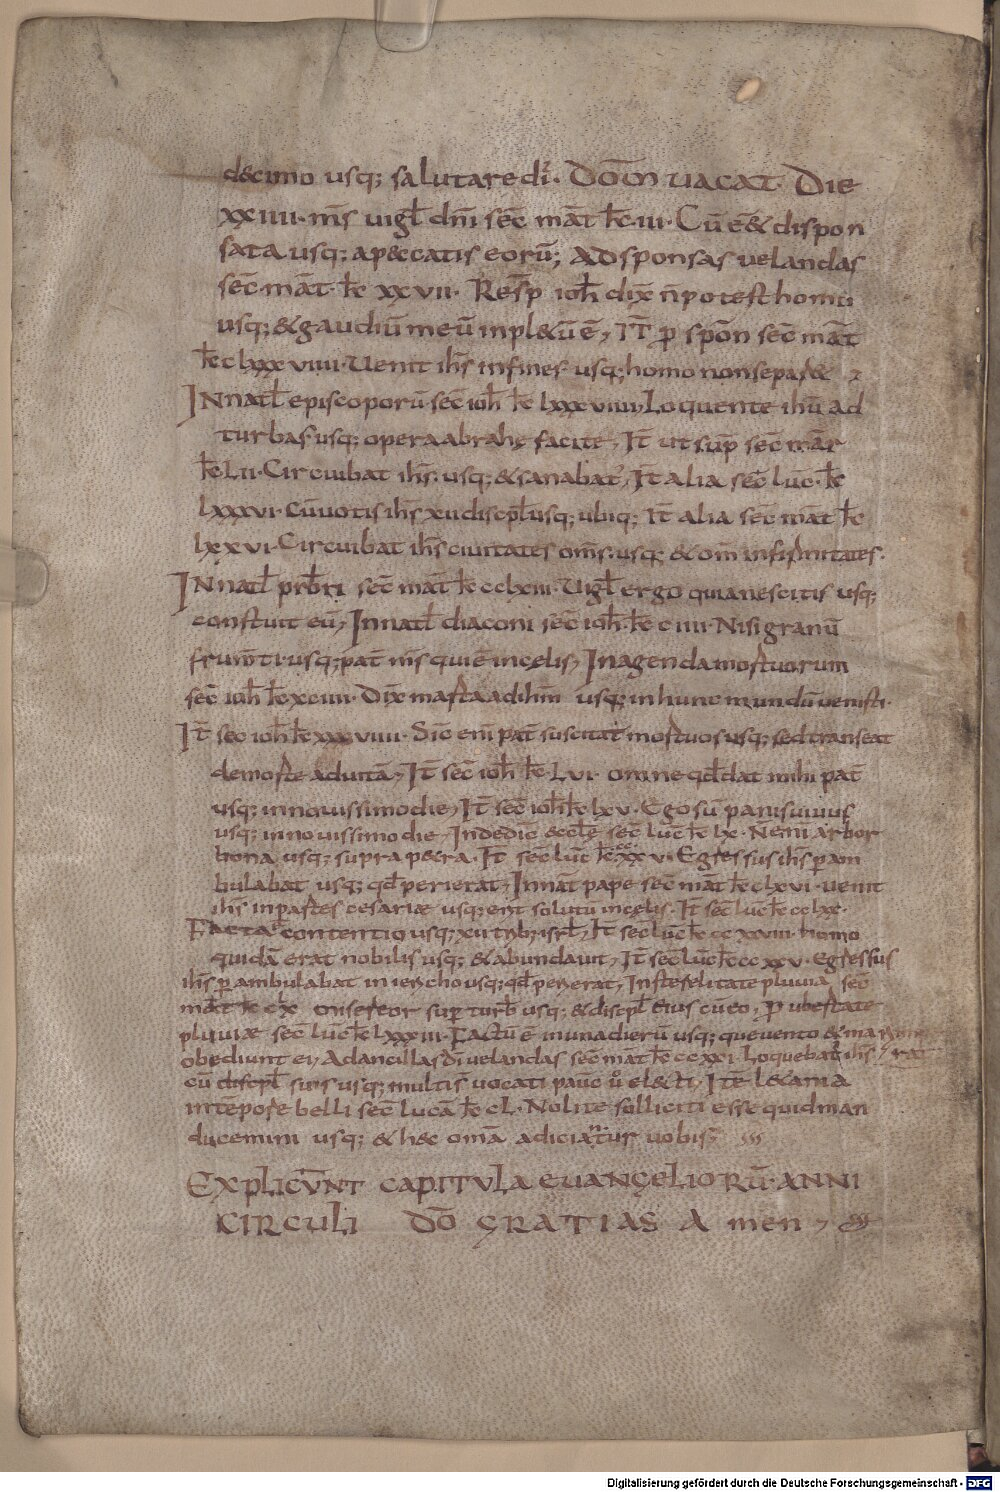 decimo usq; salutare dī. Dōm uacat. Die
xxiiii. m̄s uigl̄ dn̄i sēc māt k̄e. iii. Cū ēet dispon
sata usq; apeccatis eorū; Adsponsas uelandas
sēc māt. k̄e xxvii. Resp̄ ioh̄ dix n̄ potest homo
usq; &gaudiū meū inpl&ū ē, IT̄ p̄ spōn sēc māt
k̄e clxxxviiii. Uenit ih̄s infines usq; homo nonsepar&
INnatl̄ episcoporū sēc ioh̄ k̄e lxxxviiii, Loquente ihū ad
turbas usq; opera abrahę facite, It̄ ut sup̄ sēc mār
k̄e Lii. Circuibat ih̄s. usq; &sanabat̄, It̄ alia sēc lūc. k̄e
lxxxvi. cūuotis ih̄s xii discpl̄ usq; ubiq; It̄ alia sēc māt k̄e
lxxvi. Circuibat ih̄s ciuitates om̄s. usq; &om̄ infirmitates.
INnatl̄ prb̄ri sēc māt k̄e cclxiii. Uigl̄ ergo quianescitis usq;
constuit eū, Innatl̄ diaconi sēc ioh̄. k̄e ciiii. Nisi granū
frum̄ti. usq; pat̄ m̄s quiē incelis, Inagenda mortuorum
sēc ioh̄ k̄e xciiii. Dix martha adihm̄ usq; inhunc mundū uenisti.
It̄ sec ioh̄ k̄e xxxviiii. Sīc enī pat̄ suscitat mortuos usq; sed transeat
demorte aduitā, It̄ sēc ioh̄ k̄e. Lvi. omne qd̄ dat mihi pat̄
usq; innouissimo die, It̄ sēc ioh̄ k̄e lxv. Ego sū panis uiuus
usq; innouissimo die, Indedic̄ &cl̄e sēc lūc k̄e lx. N̄ enī arbor
bona usq; supra p&ra. It̄ sēc lūc k̄e ccxxv. Egressus ih̄s p̄am
bulabat usq; qd̄ perierat, Innāt pape sēc māt k̄e clxvi. uenit
ih̄s inpartes cesariae usq; erit solutū incelis. It̄ sēc lūc k̄e cclxx.
Facta ē contentio usq; xii trib; isrl̄, It̄ sēc lūc k̄e ccxxviii. homo
quidā erat nobilis usq; &abundauit, It̄ sēc lūc k̄e ccxxv. Egressus
ih̄s p̄ambulabat in iericho usq; qd̄ perierat, Insterelitate pluuia sēc
māt k̄e clx misereor sup̄ turb̄ usq; &discpl̄ eius cū eo, P̄ ubertate
pluuiae sēc lūc k̄e lxxxiii. Factū ē inunadierū usq; que uento &mari impe
obediunt ei, Ad ancillas dī uelandas sēc māt k̄e ccxxi. Loquebat̄ ih̄s rat
cū discpl̄ suis usq; multis uocati pauc̄ u̇ el&i, Itē l&ania
intēpore belli sēc lucā k̄e cL. Nolite solliciti esse quidman
ducemini usq; &hec omā adiciantur uobis,
Explicūnt capitula euangeliorū. anni
circuli dō gratias Amen,
Digitalisierung gefördert durch die Deutsche Forschungsgemeinschaft - DFG